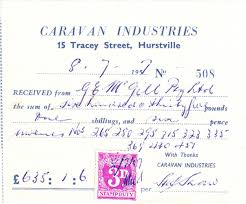 CARAVAN INDUSTRIES
15 Tracey Street, Hurstville
8 . 7 . 19 No 508
RECEIVED FROM G.E. McGill Pty Ltd
the sum of six hundred & thirty five pounds
one shillings, and six pence
Nos 265 280 295 315 323 335
With Thanks
CARAVAN INDUSTRIES
£635 : 1 : 6
3D
STAMP DUTY
per